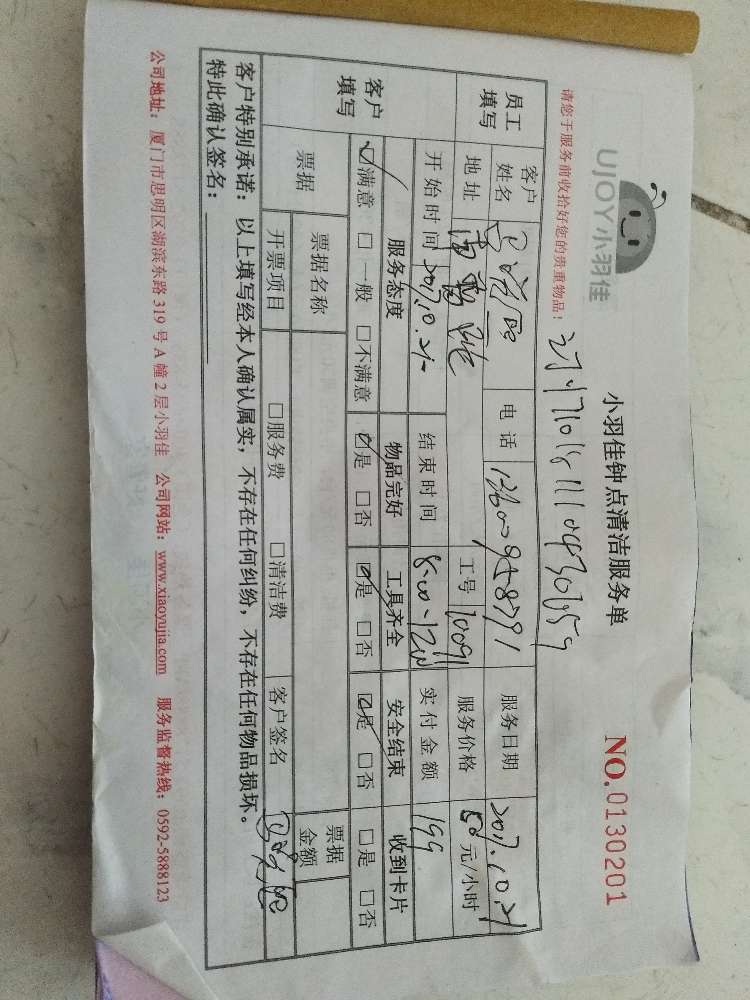 UJOY小羽佳
小羽佳钟点清洁服务单
NO.0130201
请您于服务前收拾好您的贵重物品!
员工填写 客户姓名 电话 服务日期 2017.10.21
地址 工号 10091 服务价格 元/小时
开始时间 2017.10.21 结束时间 8:00-12:00 实付金额 199
客户填写 服务态度 物品完好 工具齐全 安全结束 收到卡片
☑满意 □一般 □不满意 ☑是 □否 ☑是 □否 ☑是 □否 □是 □否
票据 票据名称 票据金额
开票项目 □服务费 □清洁费 客户签名
客户特别承诺:以上填写经本人确认属实,不存在任何纠纷,不存在任何物品损坏。
特此确认签名:
公司地址:厦门市思明区湖滨东路319号A幢2层小羽佳 公司网站:www.xiaoyujia.com 服务监督热线:0592-5888123